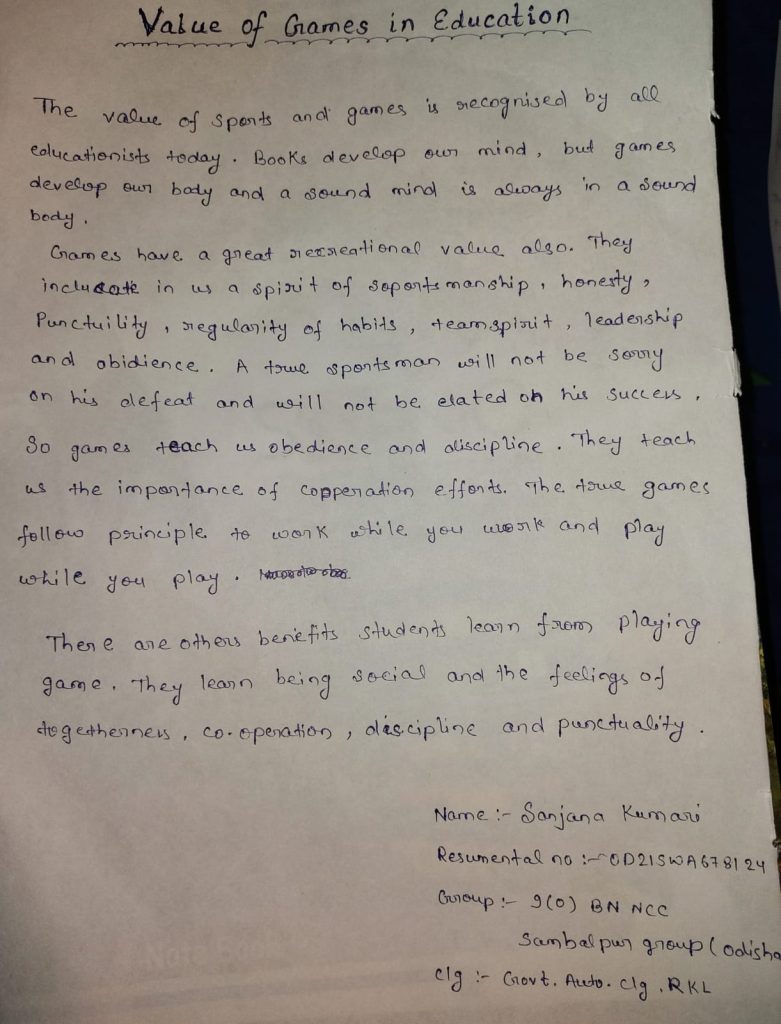 Value of Games in Education
The value of sports and games is recognised by all
educationists today. Books develop our mind, but games
develop our body and a sound mind is always in a sound
body.
Games have a great recreational value also. They
includate in us a spirit of soportsmanship, honesty,
Punctuility, regularity of habits, teamspirit, leadership
and obidience. A true sportsman will not be sorry
on his defeat and will not be elated on his success.
So games teach us obedience and discipline. They teach
us the importance of copperation efforts. The true games
follow principle to work while you work and play
while you play.
There are others benefits students learn from playing
game. They learn being social and the feelings of
togetherness, co-operation, discipline and punctuality.
Name :- Sanjana Kumari
Resumental no :- OD21SWA678124
Group :- 9(O) BN NCC
Sambalpur group (Odisha
clg :- Govt. Auto. clg, RKL